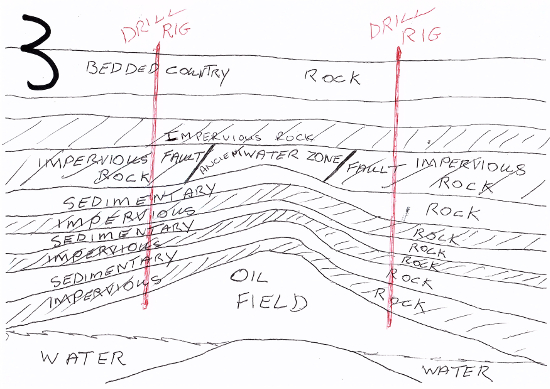 3
DRILL RIG
DRILL RIG
BEDDED COUNTRY ROCK
IMPERVIOUS ROCK
IMPERVIOUS ROCK
FAULT
ANCIENT WATER ZONE
FAULT
IMPERVIOUS ROCK
SEDIMENTARY ROCK
IMPERVIOUS ROCK
SEDIMENTARY ROCK
IMPERVIOUS ROCK
SEDIMENTARY ROCK
IMPERVIOUS ROCK
OIL FIELD
WATER
WATER